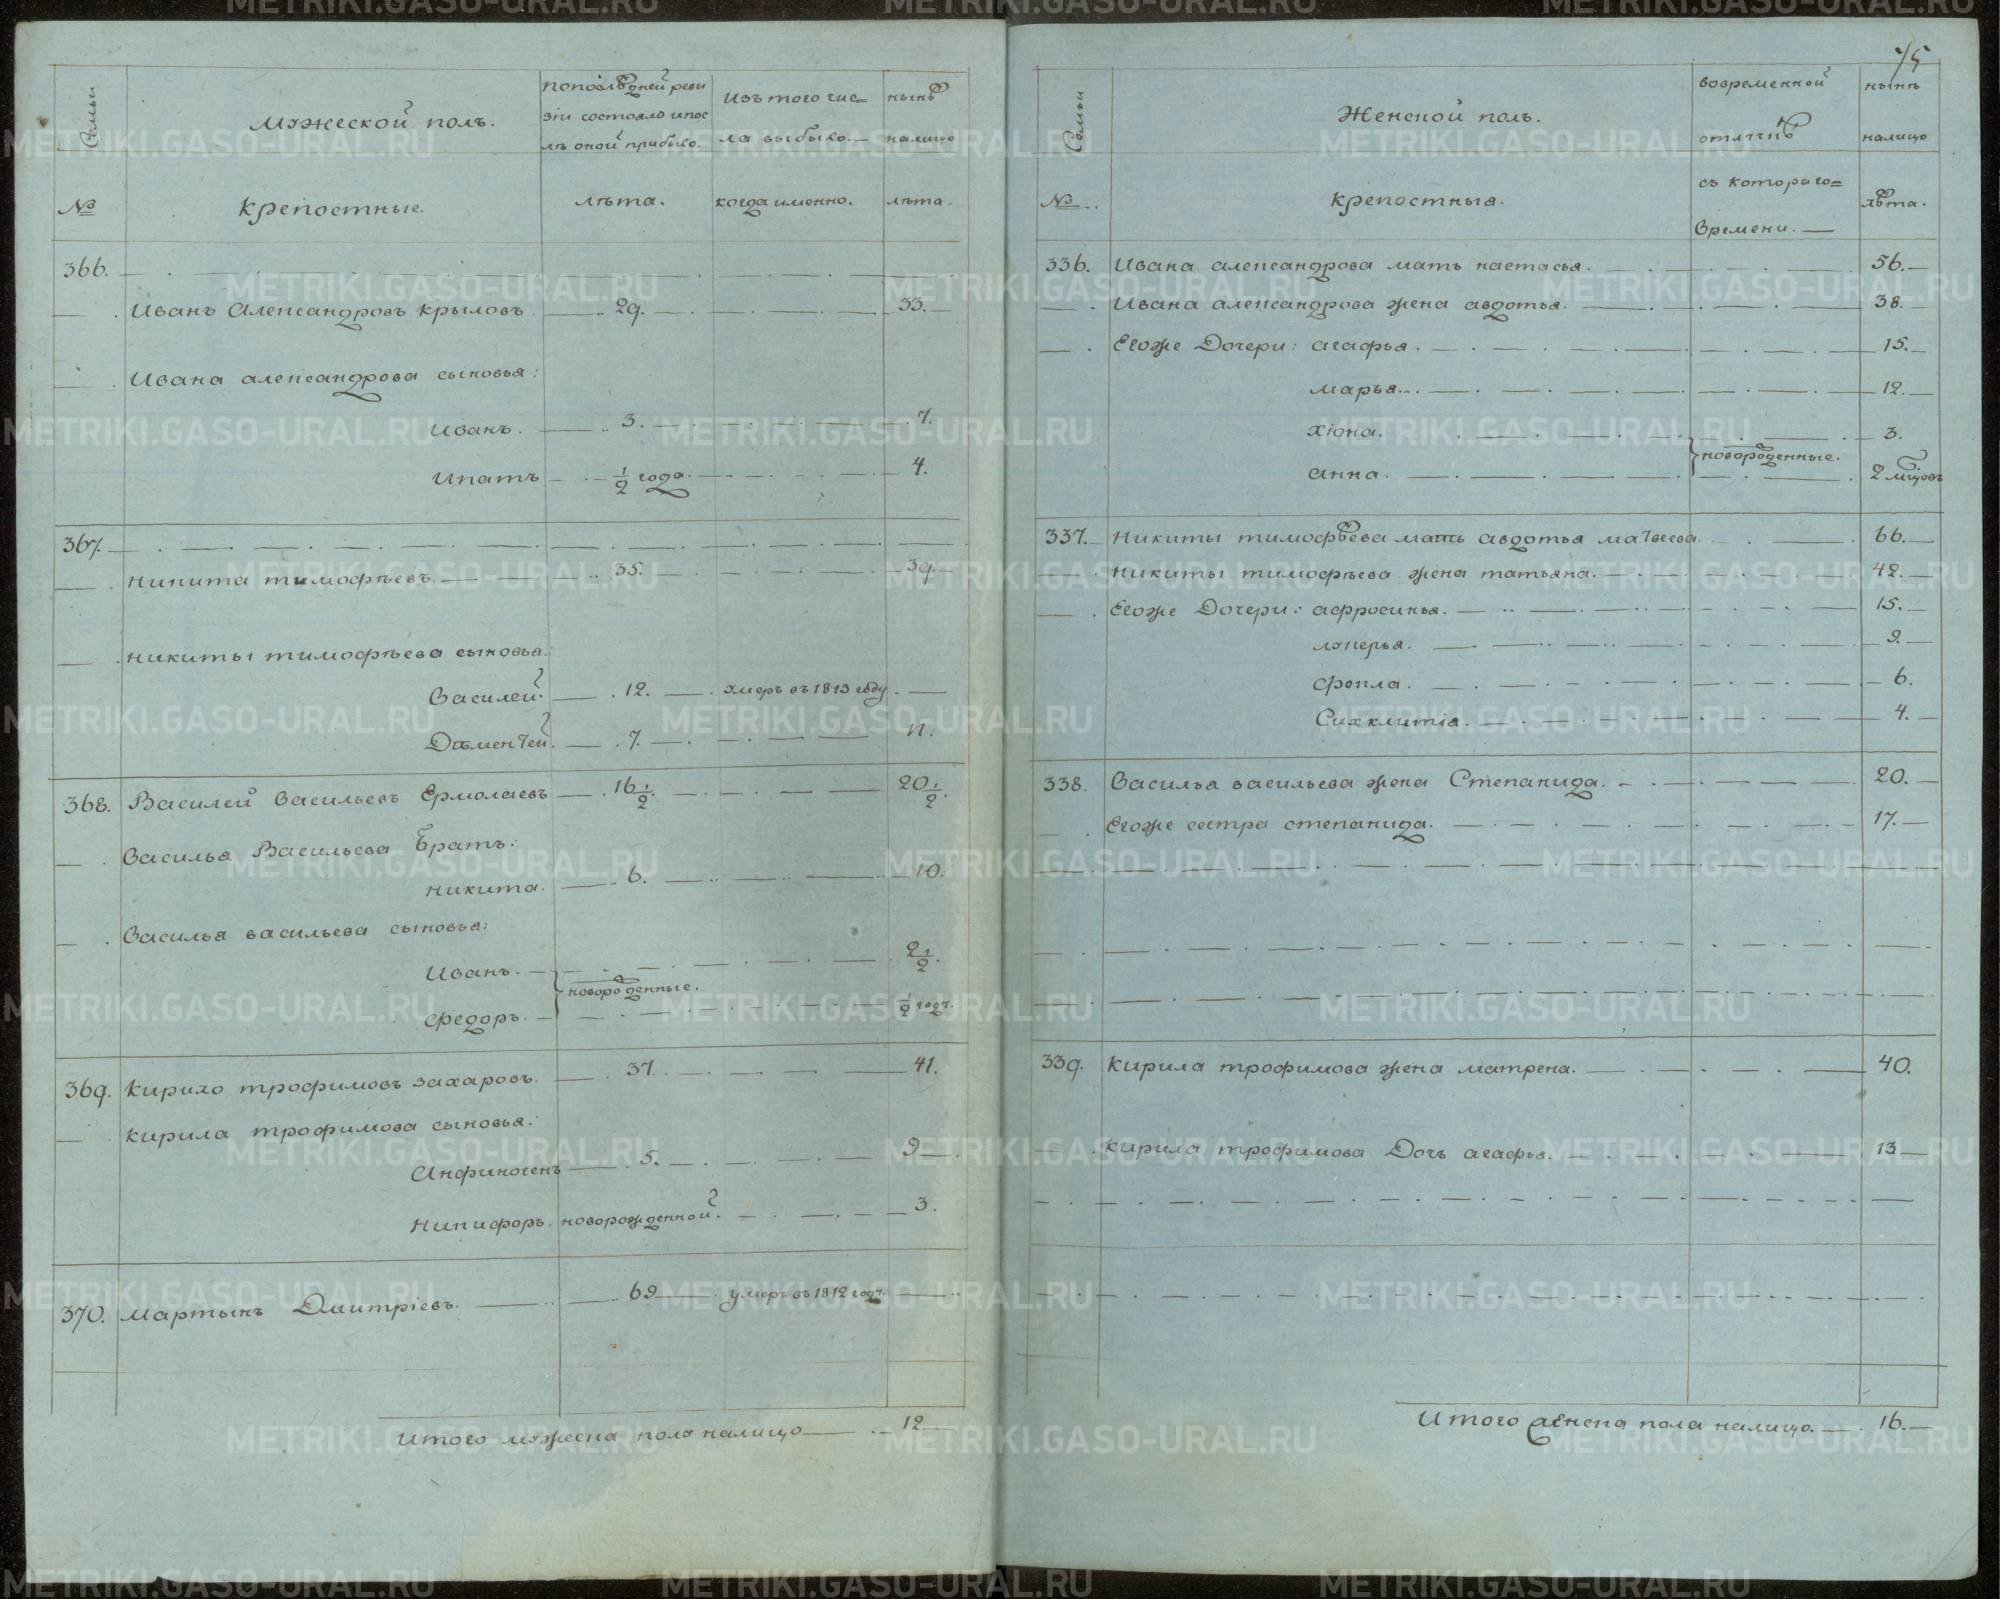 Семьи
Мужеской полъ.
Попослѣдней реви
зіи состояло ипос
лѣ оной прибыло.
Изътого чис=
ла выбыло.
нынѣ
налицо
№
Крепостные.
лѣта.
когда именно.
лѣта.
366.
Иванъ Александровъ крыловъ 29. 33.
Ивана александрова сыновья:
Иванъ. 3. 7.
Ипатъ 1/2 года. 4.
367.
Никита тимофѣевъ 35. 39.
Никиты тимофѣева сыновья:
Василей. 12. умеръ въ 1813 году.
Дѣментей. 7. 11.
368. Василей Васильевъ Ермолаевъ 16 1/2. 20 1/2.
Василья Васильева Братъ:
Никита. 6. 10.
Василья васильева сыновья:
Иванъ. 2 1/2.
новорожденные.
Федоръ. 1/2 года.
369. Кирило трофимовъ захаровъ. 37. 41.
Кирила трофимова сыновья:
Анфиногенъ 5. 9
Никифоръ. новорожденной. 3.
370. Мартынъ Дмитріевъ. 69 умеръ въ 1812 году.
Итого мужеска пола налицо 12
75
Семьи
Женской полъ.
вовременной
отлучкѣ
нынѣ
налицо
№
Крепостныя.
съ котораго=
времени.
лѣта.
336. Ивана александрова мать настасья. 56.
Ивана александрова жена авдотья. 38.
Егоже Дочери: агафья. 15.
марья. 12.
хіона. 3.
новорожденные.
анна. 2 мѣсяцовъ
337. Никиты тимофѣева мать авдотья матвеева. 66.
Никиты тимофѣева жена татьяна. 42.
Егоже Дочери: афросинья. 15.
лукерья. 9.
Фекла. 6.
Сихклитія. 4.
338. Василья васильева жена Степанида. 20.
Егоже сестра степанида. 17.
339. Кирила трофимова жена матрена. 40.
Кирила трофимова Дочь агафья. 13
Итого женска пола налицо. 16.
METRIKI.GASO-URAL.RU